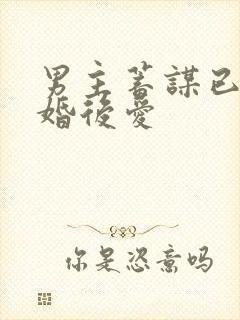 男主蓄謀已
婚後愛
你是恣意吗